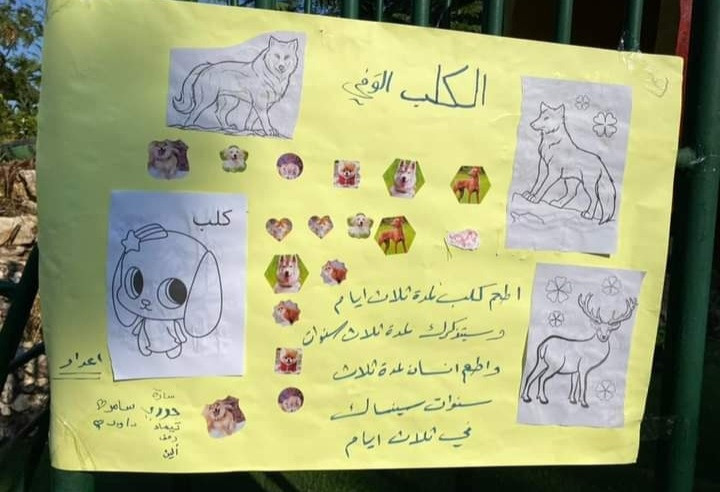 الكلب الوفي
كلب
اطعم كلب لمدة ثلاث ايام
وسيتذكرك لمدة ثلاث سنوات
واطعم انسان لمدة ثلاث
سنوات سينساك
في ثلاث ايام
اعداد
سارة
حوري
تيماء
ألين